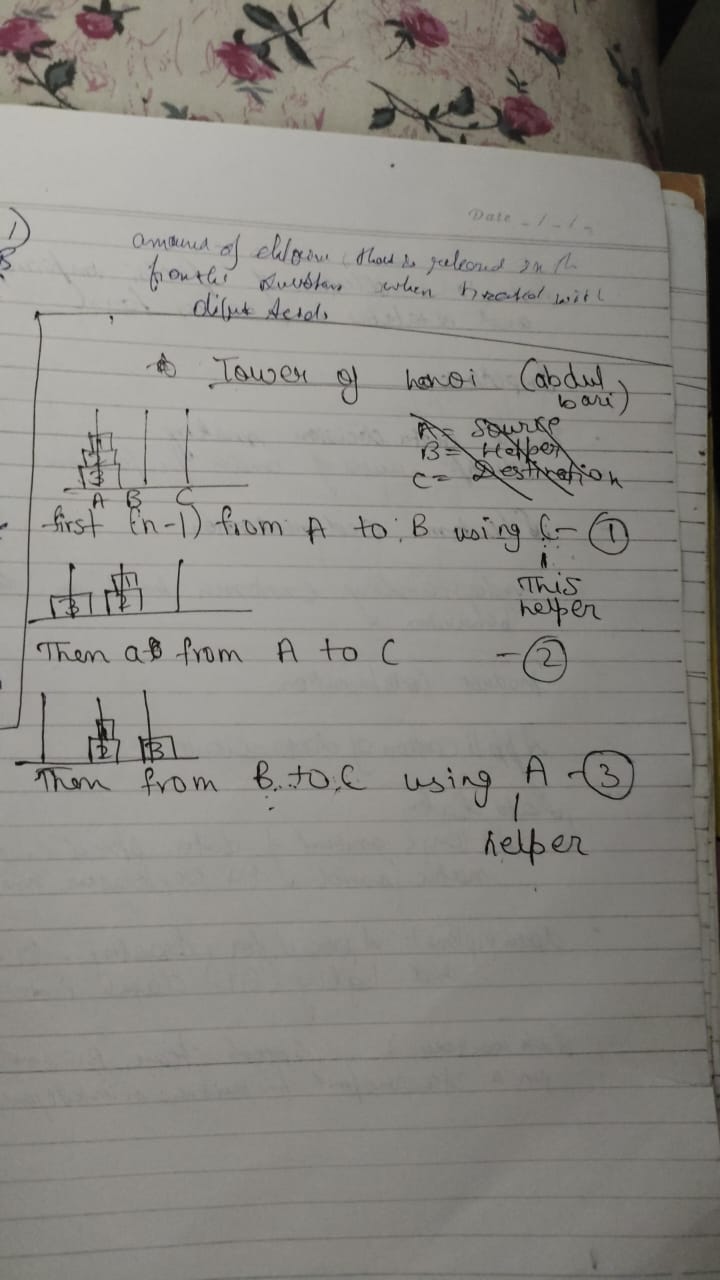 Date
1)
amound of chlorine that is released
when treated with
dilute Acids
Tower of hanoi (abdul
bari)
A = Source
B = Helper
C = Destination
1
2
3
A B C
first (n-1) from A to B using C - 1
This
helper
3 1
2
Then from A to C - 2
1
2 3
Then from B to C using A - 3
helper